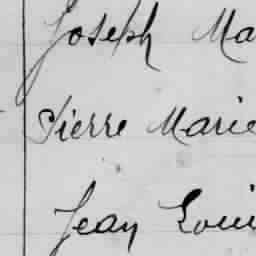 Joseph Ma
Pierre Marie
Jean Loui